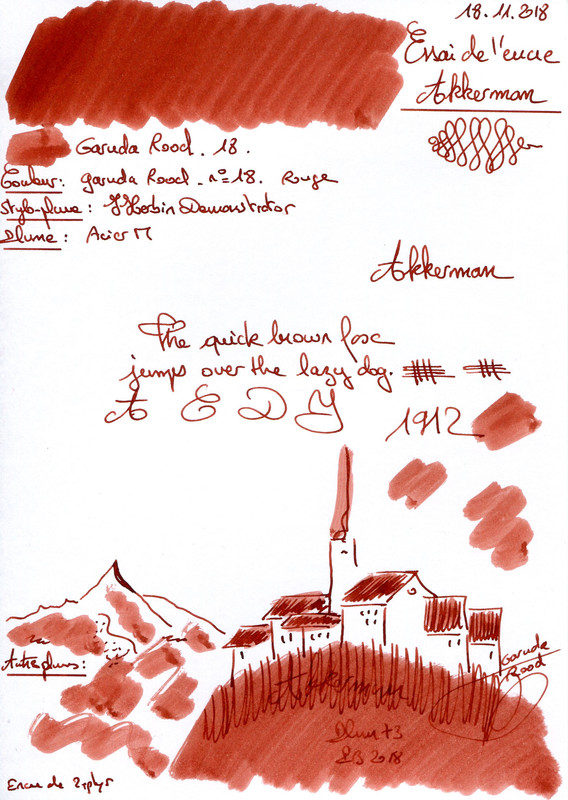 18.11.2018
Essai de l'encre
Akkerman
Garuda Rood. 18.
Couleur: garuda Rood. n°=18. Rouge
Stylo-plume: J Herbin Demonstrator
Plume: Acier M
Akkerman
The quick brown fox
jumps over the lazy dog.
A E D Y 1912
Garuda
Rood
Autres plumes:
Akkerman
2018
Encre de Zephyr